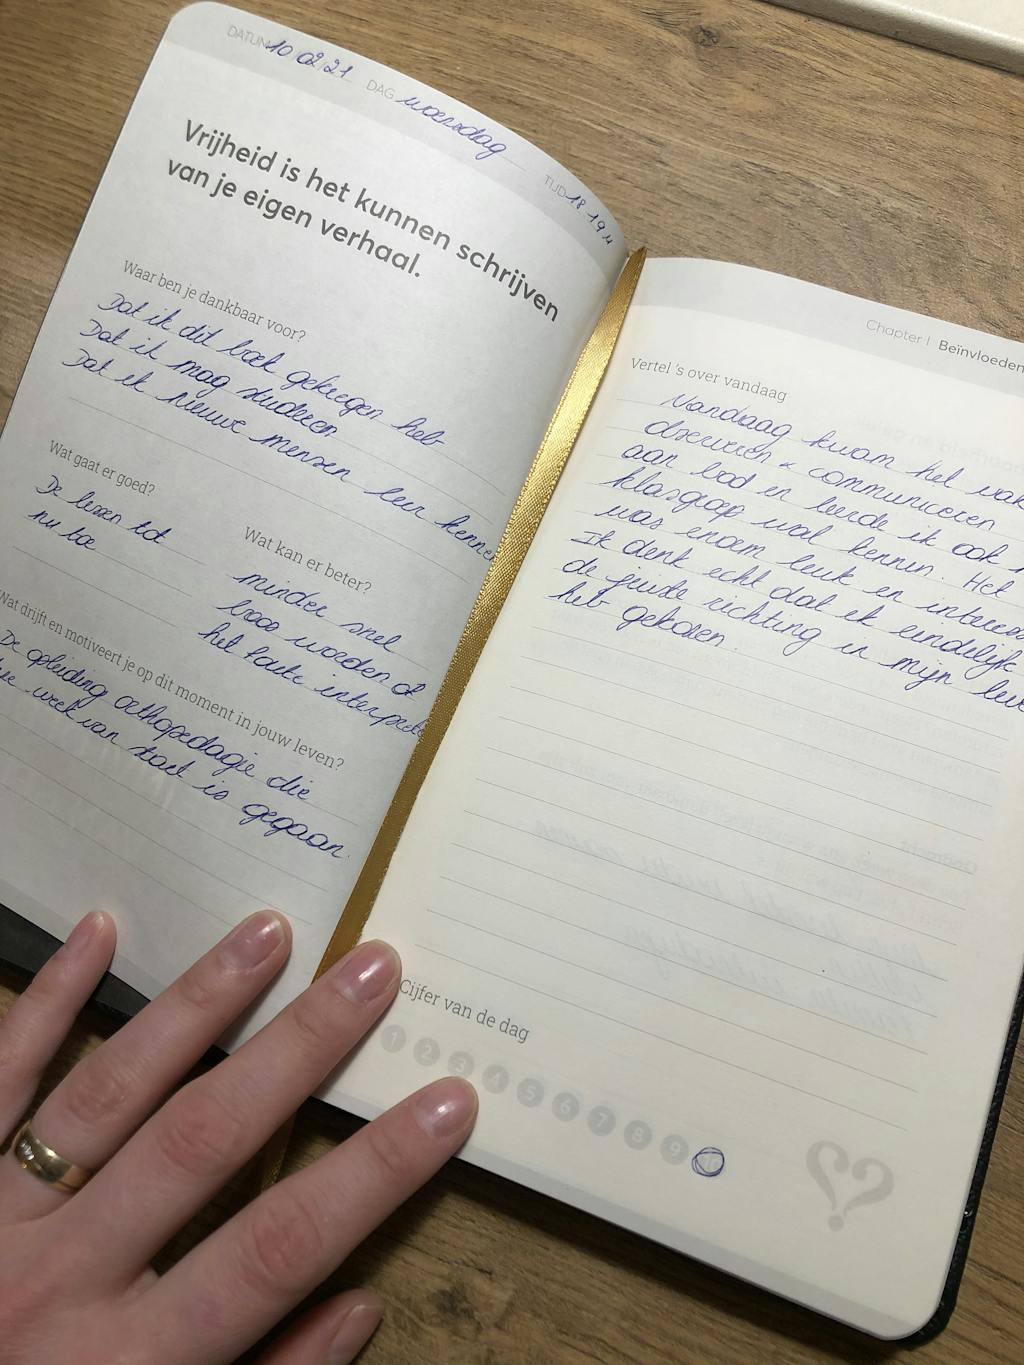 DATUM 10 02 21 DAG woensdag TIJD 18 19 u
Vrijheid is het kunnen schrijven
van je eigen verhaal.
Waar ben je dankbaar voor?
Dat ik dit boek gekregen heb
Dat ik mag studeren
Dat ik nieuwe mensen leer kennen
Wat gaat er goed?
De lessen tot
nu toe
Wat kan er beter?
minder snel
boos worden of
het foute
Wat drijft en motiveert je op dit moment in jouw leven?
De opleiding orthopedagie die
week van start is gegaan.
Chapter I Beïnvloeden
Vertel 's over vandaag
Vandaag kwam het vak
observeren & communiceren
aan bod en leerde ik ook
klasgroep wat kennen. Het
was enorm leuk en
Ik denk echt dat ik eindelijk
de juiste richting in mijn
heb gekozen.
Cijfer van de dag
1 2 3 4 5 6 7 8 9